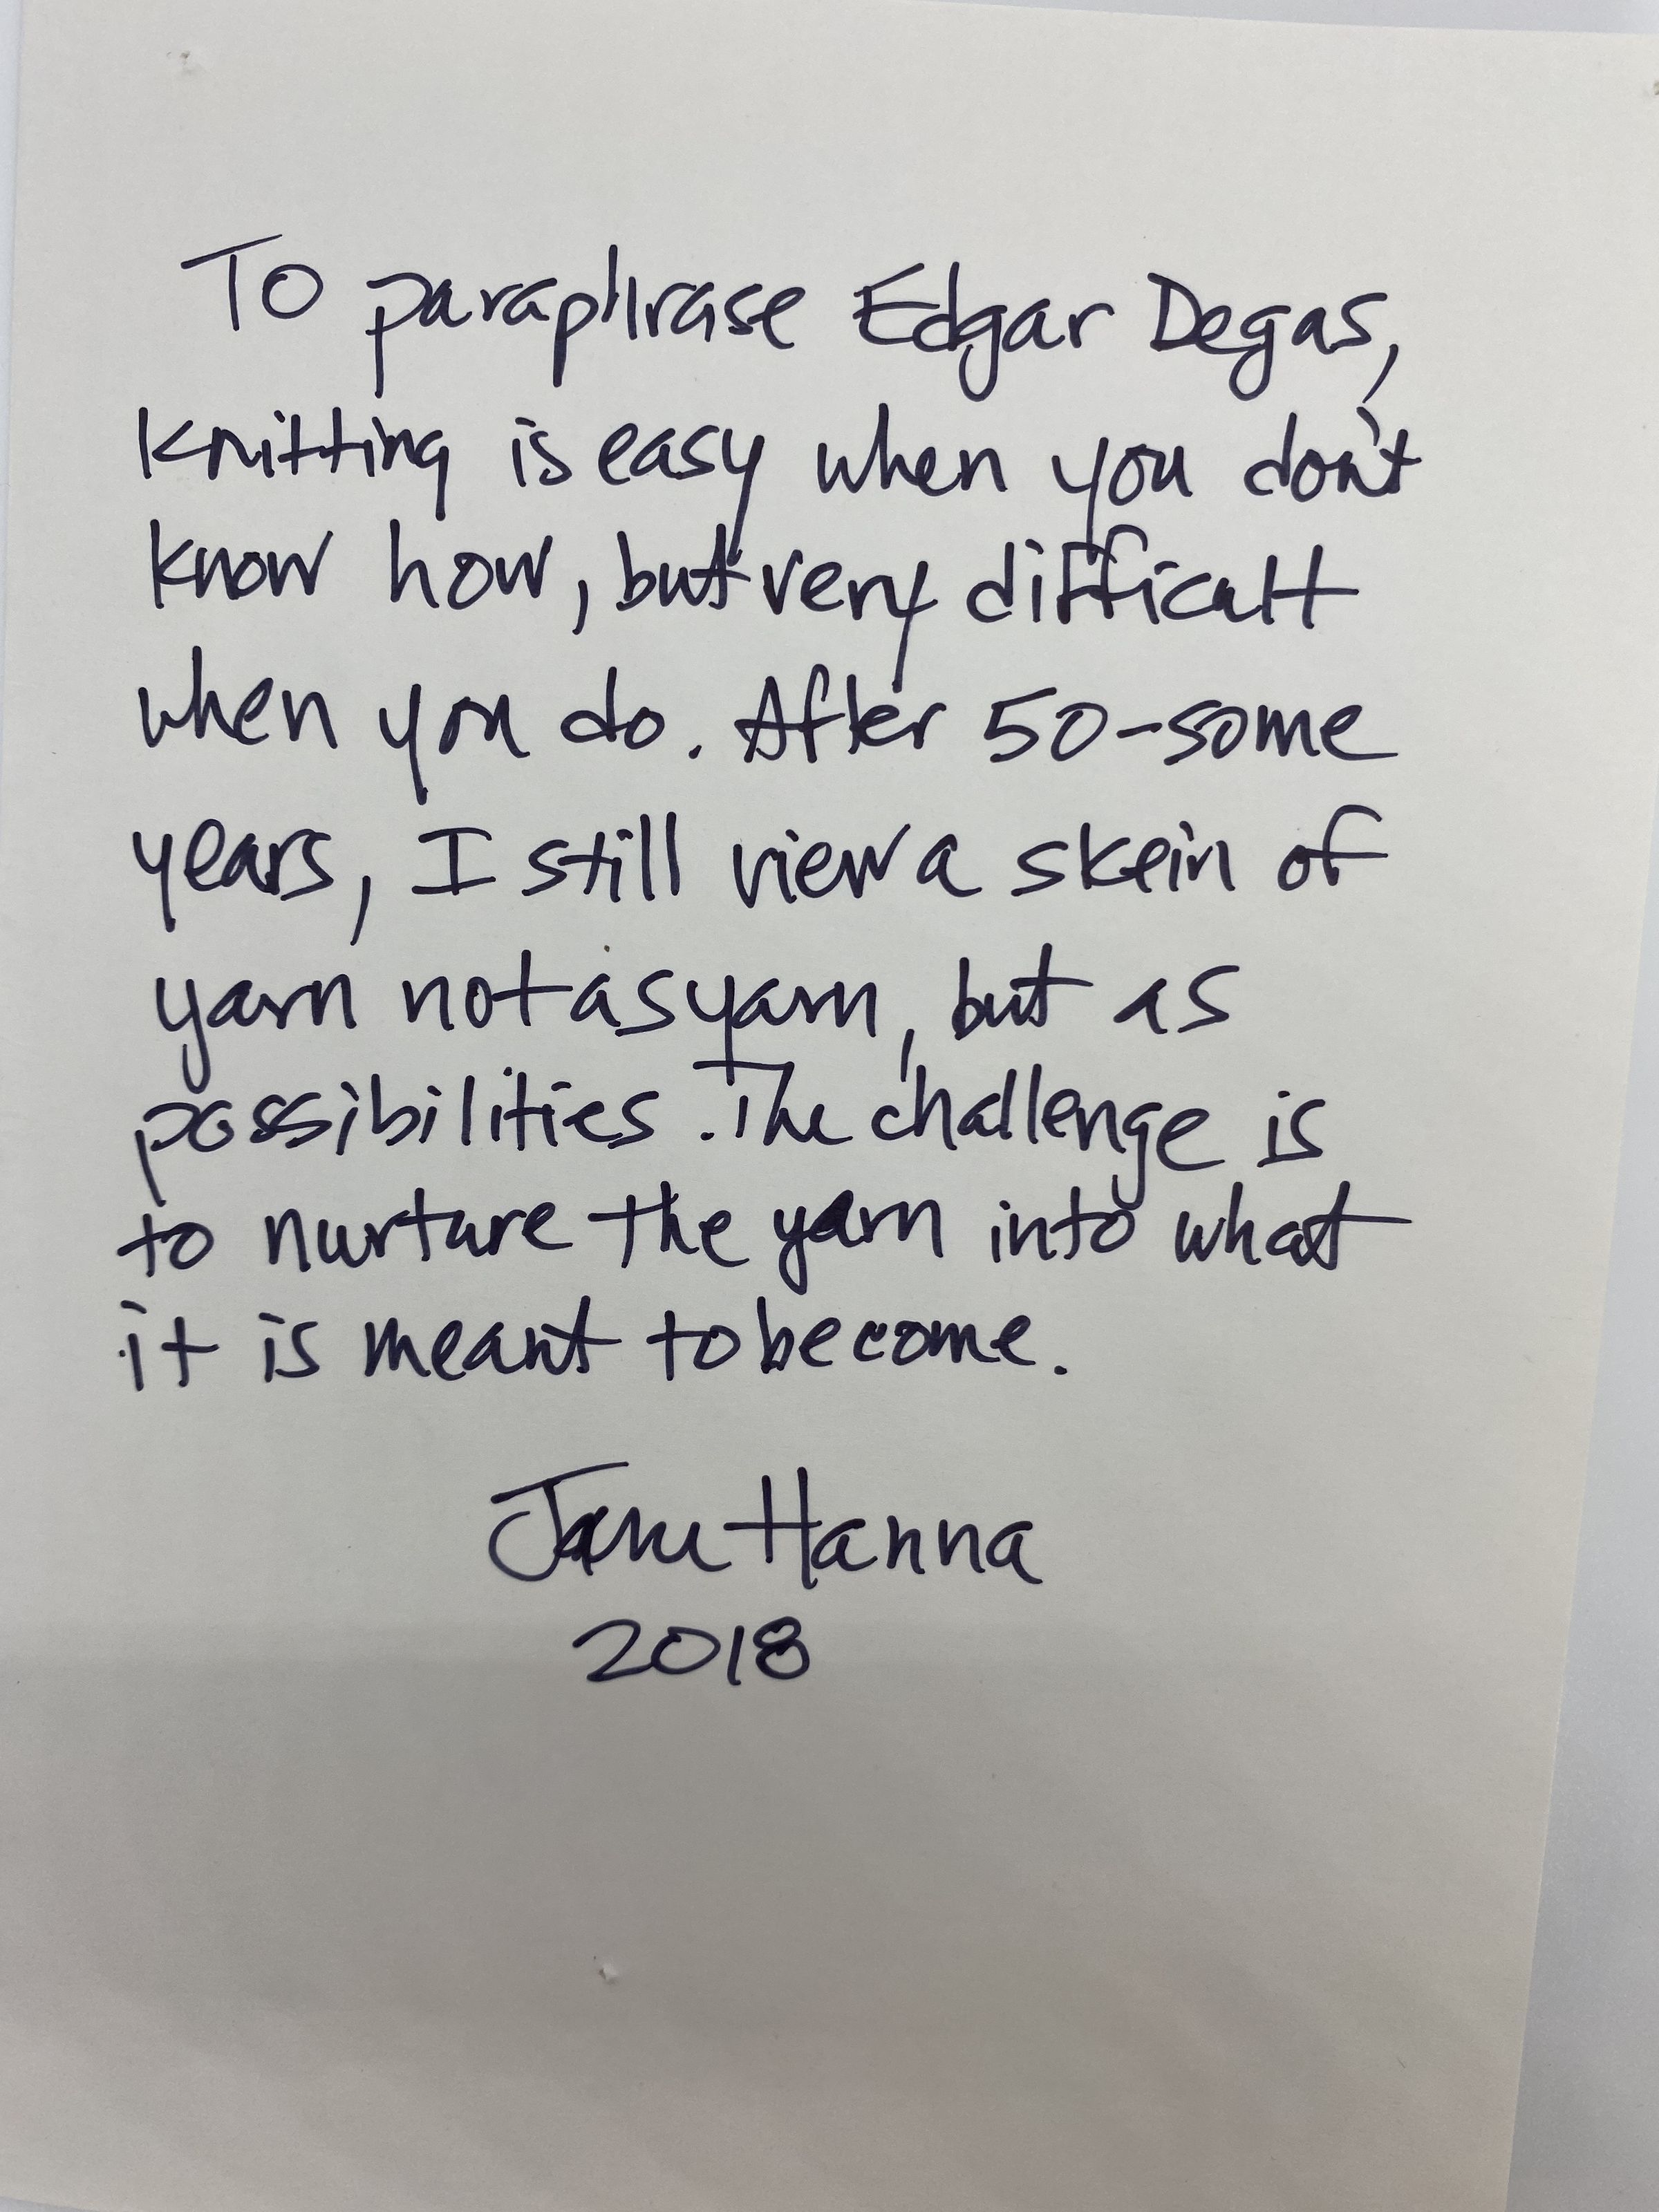 To paraphrase Edgar Degas,
knitting is easy when you don't
know how, but very difficult
when you do. After 50-some
years, I still view a skein of
yarn not as yarn, but as
possibilities. The challenge is
to nurture the yarn into what
it is meant to become.
Jane Hanna
2018